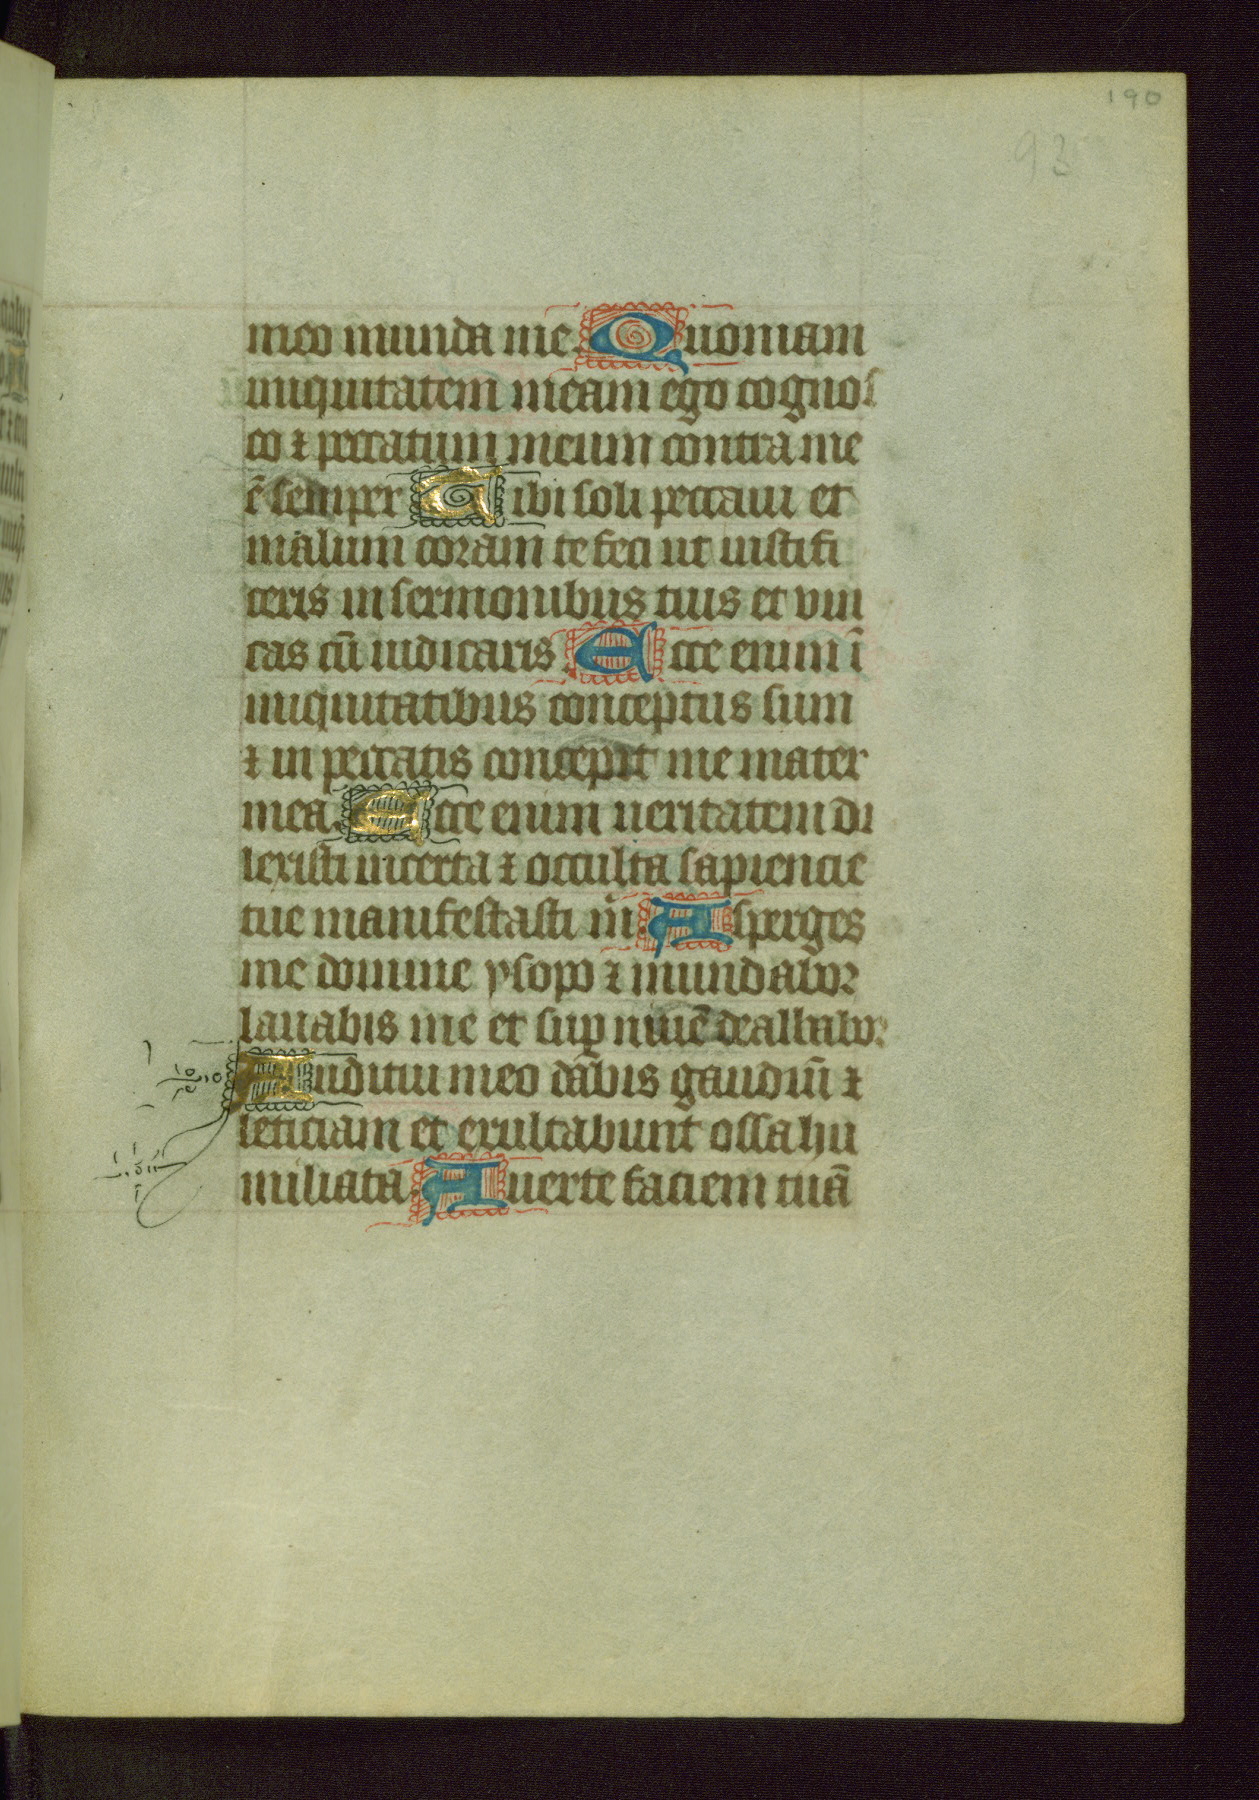 190
93
meo munda me. Quoniam
iniquitatem meam ego cognos
co ⁊ peccatum meum contra me
ē semper Tibi soli peccaui et
malum coram te feci ut iustifi
ceris in sermonibus tuis et vin
cas cū iudicaris. Ecce enim ī
iniquitatibus conceptus sum
⁊ in peccatis concepit me mater
mea. Ecce enim ueritatem di
lexisti incerta ⁊ occulta sapiencie
tue manifestasti m̄. Asperges
me domine ysopo ⁊ mundabor
lauabis me et suꝑ niuē dealbabor
Auditui meo dabis gaudiū ⁊
leticiam et exultabunt ossa hu
miliata. Auerte faciem tuā